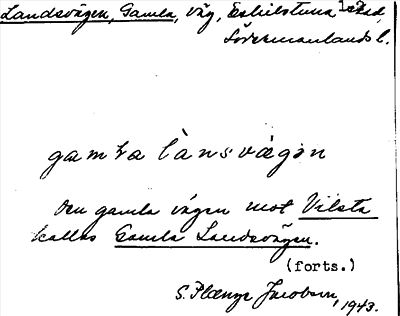 Landsvägen, Gamla, väg, Eskilstuna stad,
Södermanlands l.
gamla lànsvägen
Den gamla vägen mot Vilsta
kallas Gamla Landsvägen.
(forts.)
S. Plænge Jacobson, 1943.